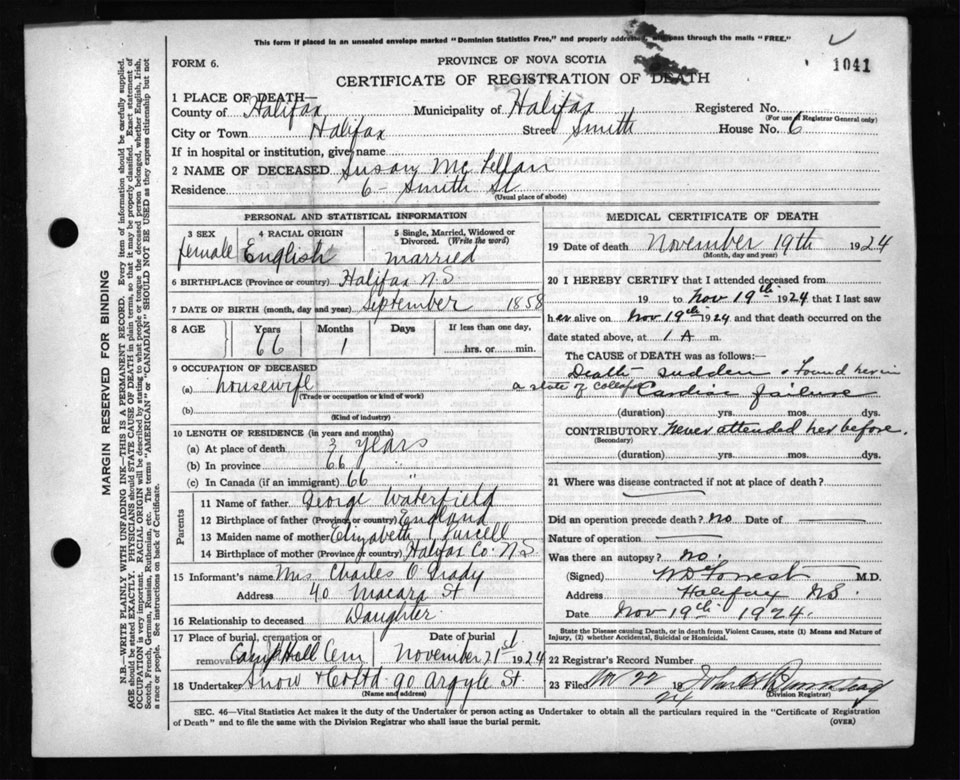 This form if placed in an unsealed envelope marked "Dominion Statistics Free," and properly addressed, will pass through the mails "FREE."
FORM 6.
PROVINCE OF NOVA SCOTIA
CERTIFICATE OF REGISTRATION OF DEATH
1041
1 PLACE OF DEATH—
County of Halifax Municipality of Halifax Registered No.
(For use of Registrar General only)
City or Town Halifax Street Smith House No. 6
If in hospital or institution, give name
2 NAME OF DECEASED Susan McLellan
Residence 6 - Smith St
(Usual place of abode)
PERSONAL AND STATISTICAL INFORMATION
3 SEX female
4 RACIAL ORIGIN English
5 Single, Married, Widowed or Divorced. (Write the word) married
6 BIRTHPLACE (Province or country) Halifax N.S
7 DATE OF BIRTH (month, day and year) September 1858
8 AGE Years Months Days If less than one day,
66 1 hrs. or min.
9 OCCUPATION OF DECEASED
(a) housewife
(Trade or occupation or kind of work)
(b)
(Kind of industry)
10 LENGTH OF RESIDENCE (in years and months)
(a) At place of death 3 years
(b) In province 66 "
(c) In Canada (if an immigrant) 66 "
Parents
11 Name of father George Waterfield
12 Birthplace of father (Province or country) England
13 Maiden name of mother Elizabeth Purcell
14 Birthplace of mother (Province or country) Halifax Co. N.S.
15 Informant's name Mrs Charles O'Grady
Address 40 Macara St
16 Relationship to deceased Daughter
17 Place of burial, cremation or removal Camp Hill Cem
Date of burial November 21st 1924
18 Undertaker Snow & Co Ltd 90 Argyle St.
(Name and address)
MEDICAL CERTIFICATE OF DEATH
19 Date of death November 19th 1924
(Month, day and year)
20 I HEREBY CERTIFY that I attended deceased from
19 to Nov 19th 1924 that I last saw
her alive on Nov 19th 1924 and that death occurred on the
date stated above, at 1 A m.
The CAUSE of DEATH was as follows:—
Death sudden & found her in
a state of collapse Cardiac failure
(duration) yrs. mos. dys.
CONTRIBUTORY Never attended her before.
(Secondary)
(duration) yrs. mos. dys.
21 Where was disease contracted if not at place of death?
Did an operation precede death? no Date of
Nature of operation
Was there an autopsy? no.
(Signed) W D Forrest M.D.
Address Halifax N.S.
Date Nov 19th 1924.
State the Disease causing Death, or in death from Violent Causes, state (1) Means and Nature of
Injury, (2) whether Accidental, Suicidal or Homicidal.
22 Registrar's Record Number
23 Filed Nov 22 19 24 John
(Division Registrar)
SEC. 46—Vital Statistics Act makes it the duty of the Undertaker or person acting as Undertaker to obtain all the particulars required in the "Certificate of Registration
of Death" and to file the same with the Division Registrar who shall issue the burial permit.
(OVER)
MARGIN RESERVED FOR BINDING
N.B.—WRITE PLAINLY WITH UNFADING INK—THIS IS A PERMANENT RECORD. Every item of information should be carefully supplied.
AGE should be stated EXACTLY. PHYSICIANS should STATE CAUSE OF DEATH in plain terms, so that it may be properly classified. Exact statement of
OCCUPATION is very important. RACIAL ORIGIN will be described by stating to what people or tongue the deceased person belonged, whether English, Irish,
Scotch, French, German, Russian, Ruthenian, etc. The terms "AMERICAN" or "CANADIAN" SHOULD NOT BE USED as they express citizenship but not
a race or people. See instructions on back of Certificate.